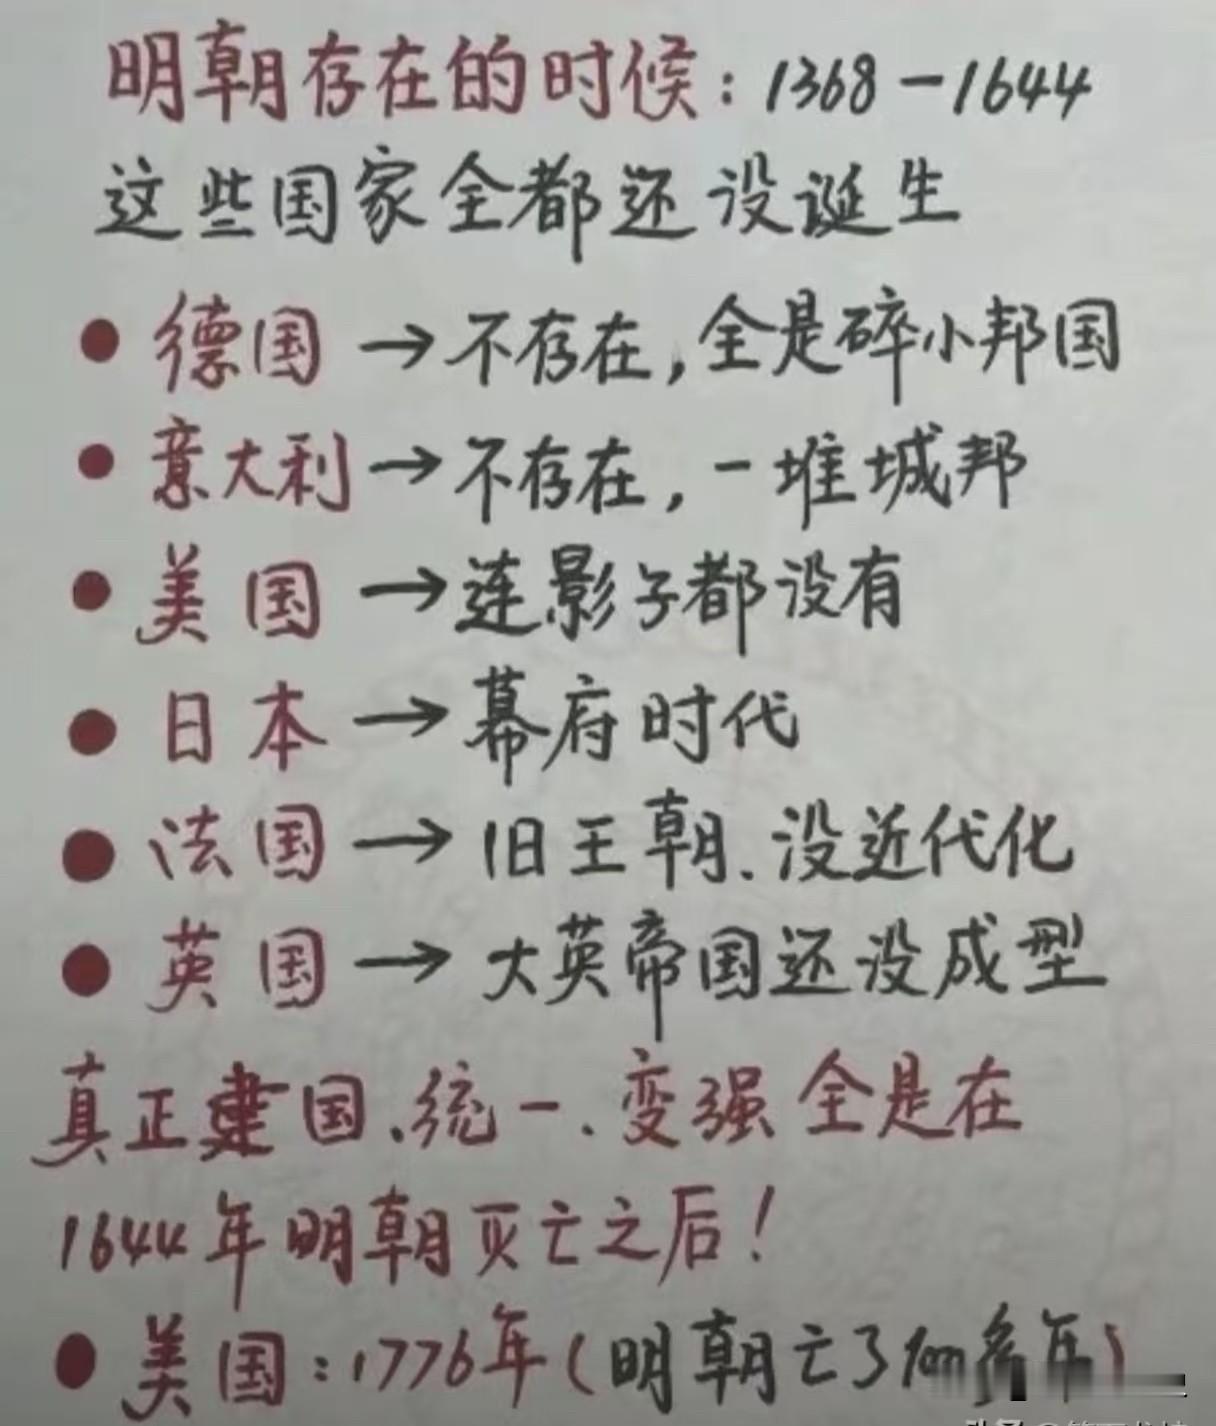 明朝存在的时候：1368－1644
这些国家全都还没诞生
● 德国 → 不存在，全是碎小邦国
● 意大利 → 不存在，一堆城邦
● 美国 → 连影子都没有
● 日本 → 幕府时代
● 法国 → 旧王朝、没近代化
● 英国 → 大英帝国还没成型
真正建国、统一、变强全是在
1644年明朝灭亡之后！
● 美国：1776年（明朝亡了100多年）